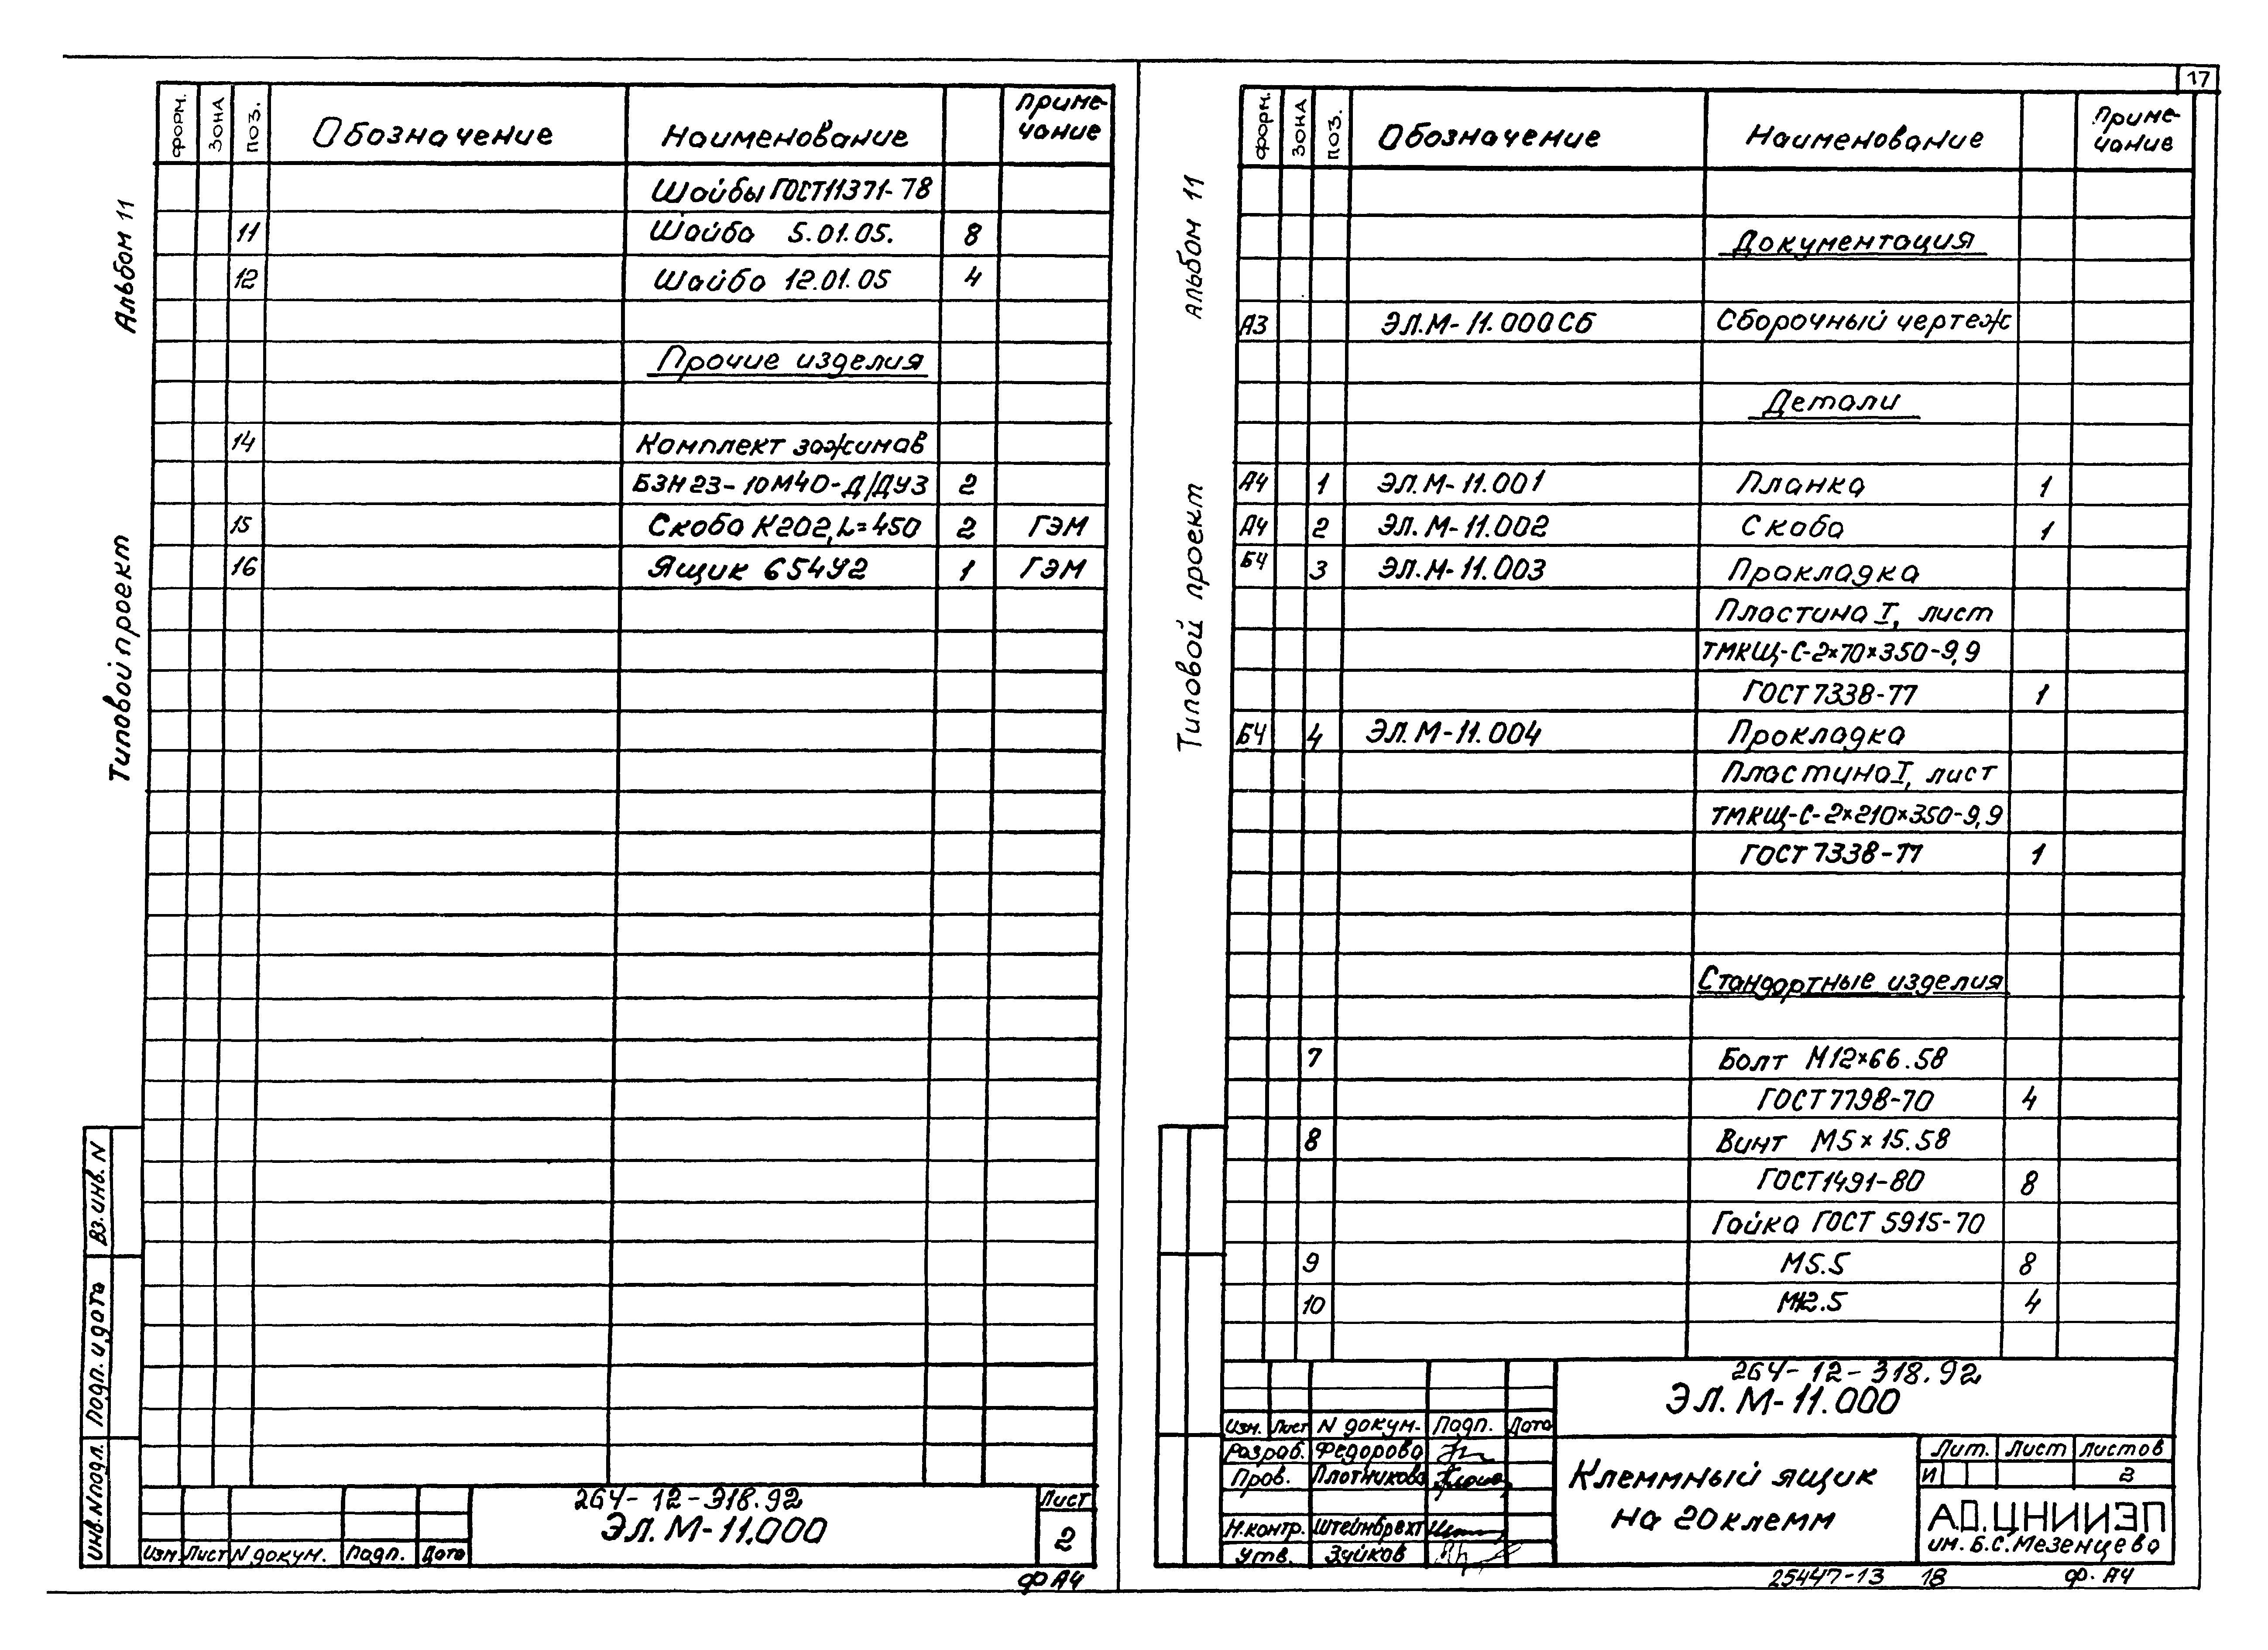 17
Альбом 11
Типовой проект
Форм. Зона Поз. Обозначение Наименование Приме-
чание
Шайбы ГОСТ 11371-78
11 Шайба 5.01.05. 8
12 Шайба 12.01.05 4
Прочие изделия
14 Комплект зажимов
БЗН23-10М40-Д/ДУ3 2
15 Скоба К202, L=450 2 ГЭМ
16 Ящик 654У2 1 ГЭМ
Вз. инв. N
Подп. и дата
Инв. N подл.
264-12-318.92
ЭЛ.М-11.000
Лист
2
Изм. Лист N докум. Подп. Дата
Ф А4
Альбом 11
Типовой проект
Форм. Зона Поз. Обозначение Наименование Приме-
чание
Документация
А3 ЭЛ.М-11.000СБ Сборочный чертеж
Детали
А4 1 ЭЛ.М-11.001 Планка 1
А4 2 ЭЛ.М-11.002 Скоба 1
БЧ 3 ЭЛ.М-11.003 Прокладка
Пластина I, лист
ТМКЩ-С-2×70×350-9,9
ГОСТ 7338-77 1
БЧ 4 ЭЛ.М-11.004 Прокладка
Пластина I, лист
ТМКЩ-С-2×210×350-9,9
ГОСТ 7338-77 1
Стандартные изделия
7 Болт М12×66.58
ГОСТ 7798-70 4
8 Винт М5×15.58
ГОСТ 1491-80 8
Гайка ГОСТ 5915-70
9 М5.5 8
10 М12.5 4
264-12-318.92
ЭЛ.М-11.000
Изм. Лист N докум. Подп. Дата
Разраб. Федорова
Пров. Плотникова
Н.контр. Штейнбрехт
Утв. Зуйков
Клеммный ящик
на 20 клемм
Лит. Лист Листов
И 2
А.О. ЦНИИЭП
им. Б.С. Мезенцева
25447-13 18 Ф. А4